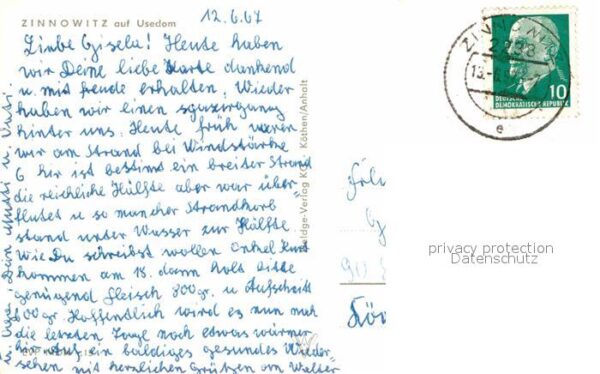 ZINNOWITZ auf Usedom
12.6.67
Liebe Gisela! Heute haben
wir Deine liebe Karte dankend
u. mit freude erhalten. Wieder
haben wir einen spaziergang
hinter uns. Heute früh waren
wir am Strand bei Windstärke
6 hier ist bestimt ein breiter Strand
die reichliche Hälfte aber war über-
flutet u so mancher Strandkorb
stand unter Wasser zur Hälfte.
Wie Du schreibst wollen Onkel Kurt
kommen am 18. dann hole bitte
genügend fleisch 800gr. u Aufschnitt
600gr. Hoffentlich wird es nun auch
die letzten Tage noch etwas wärmer
hier. Auf ein baldiges gesundes Wieder-
sehen mit herzlichen Grüßen an Walter
Deine Mutti u. Vati.
Köthen/Anhalt
ZINN
13.-6.
10
DEUTSCHE
DEMOKRATISCHE REPUBLIK
e
privacy protection
Datenschutz